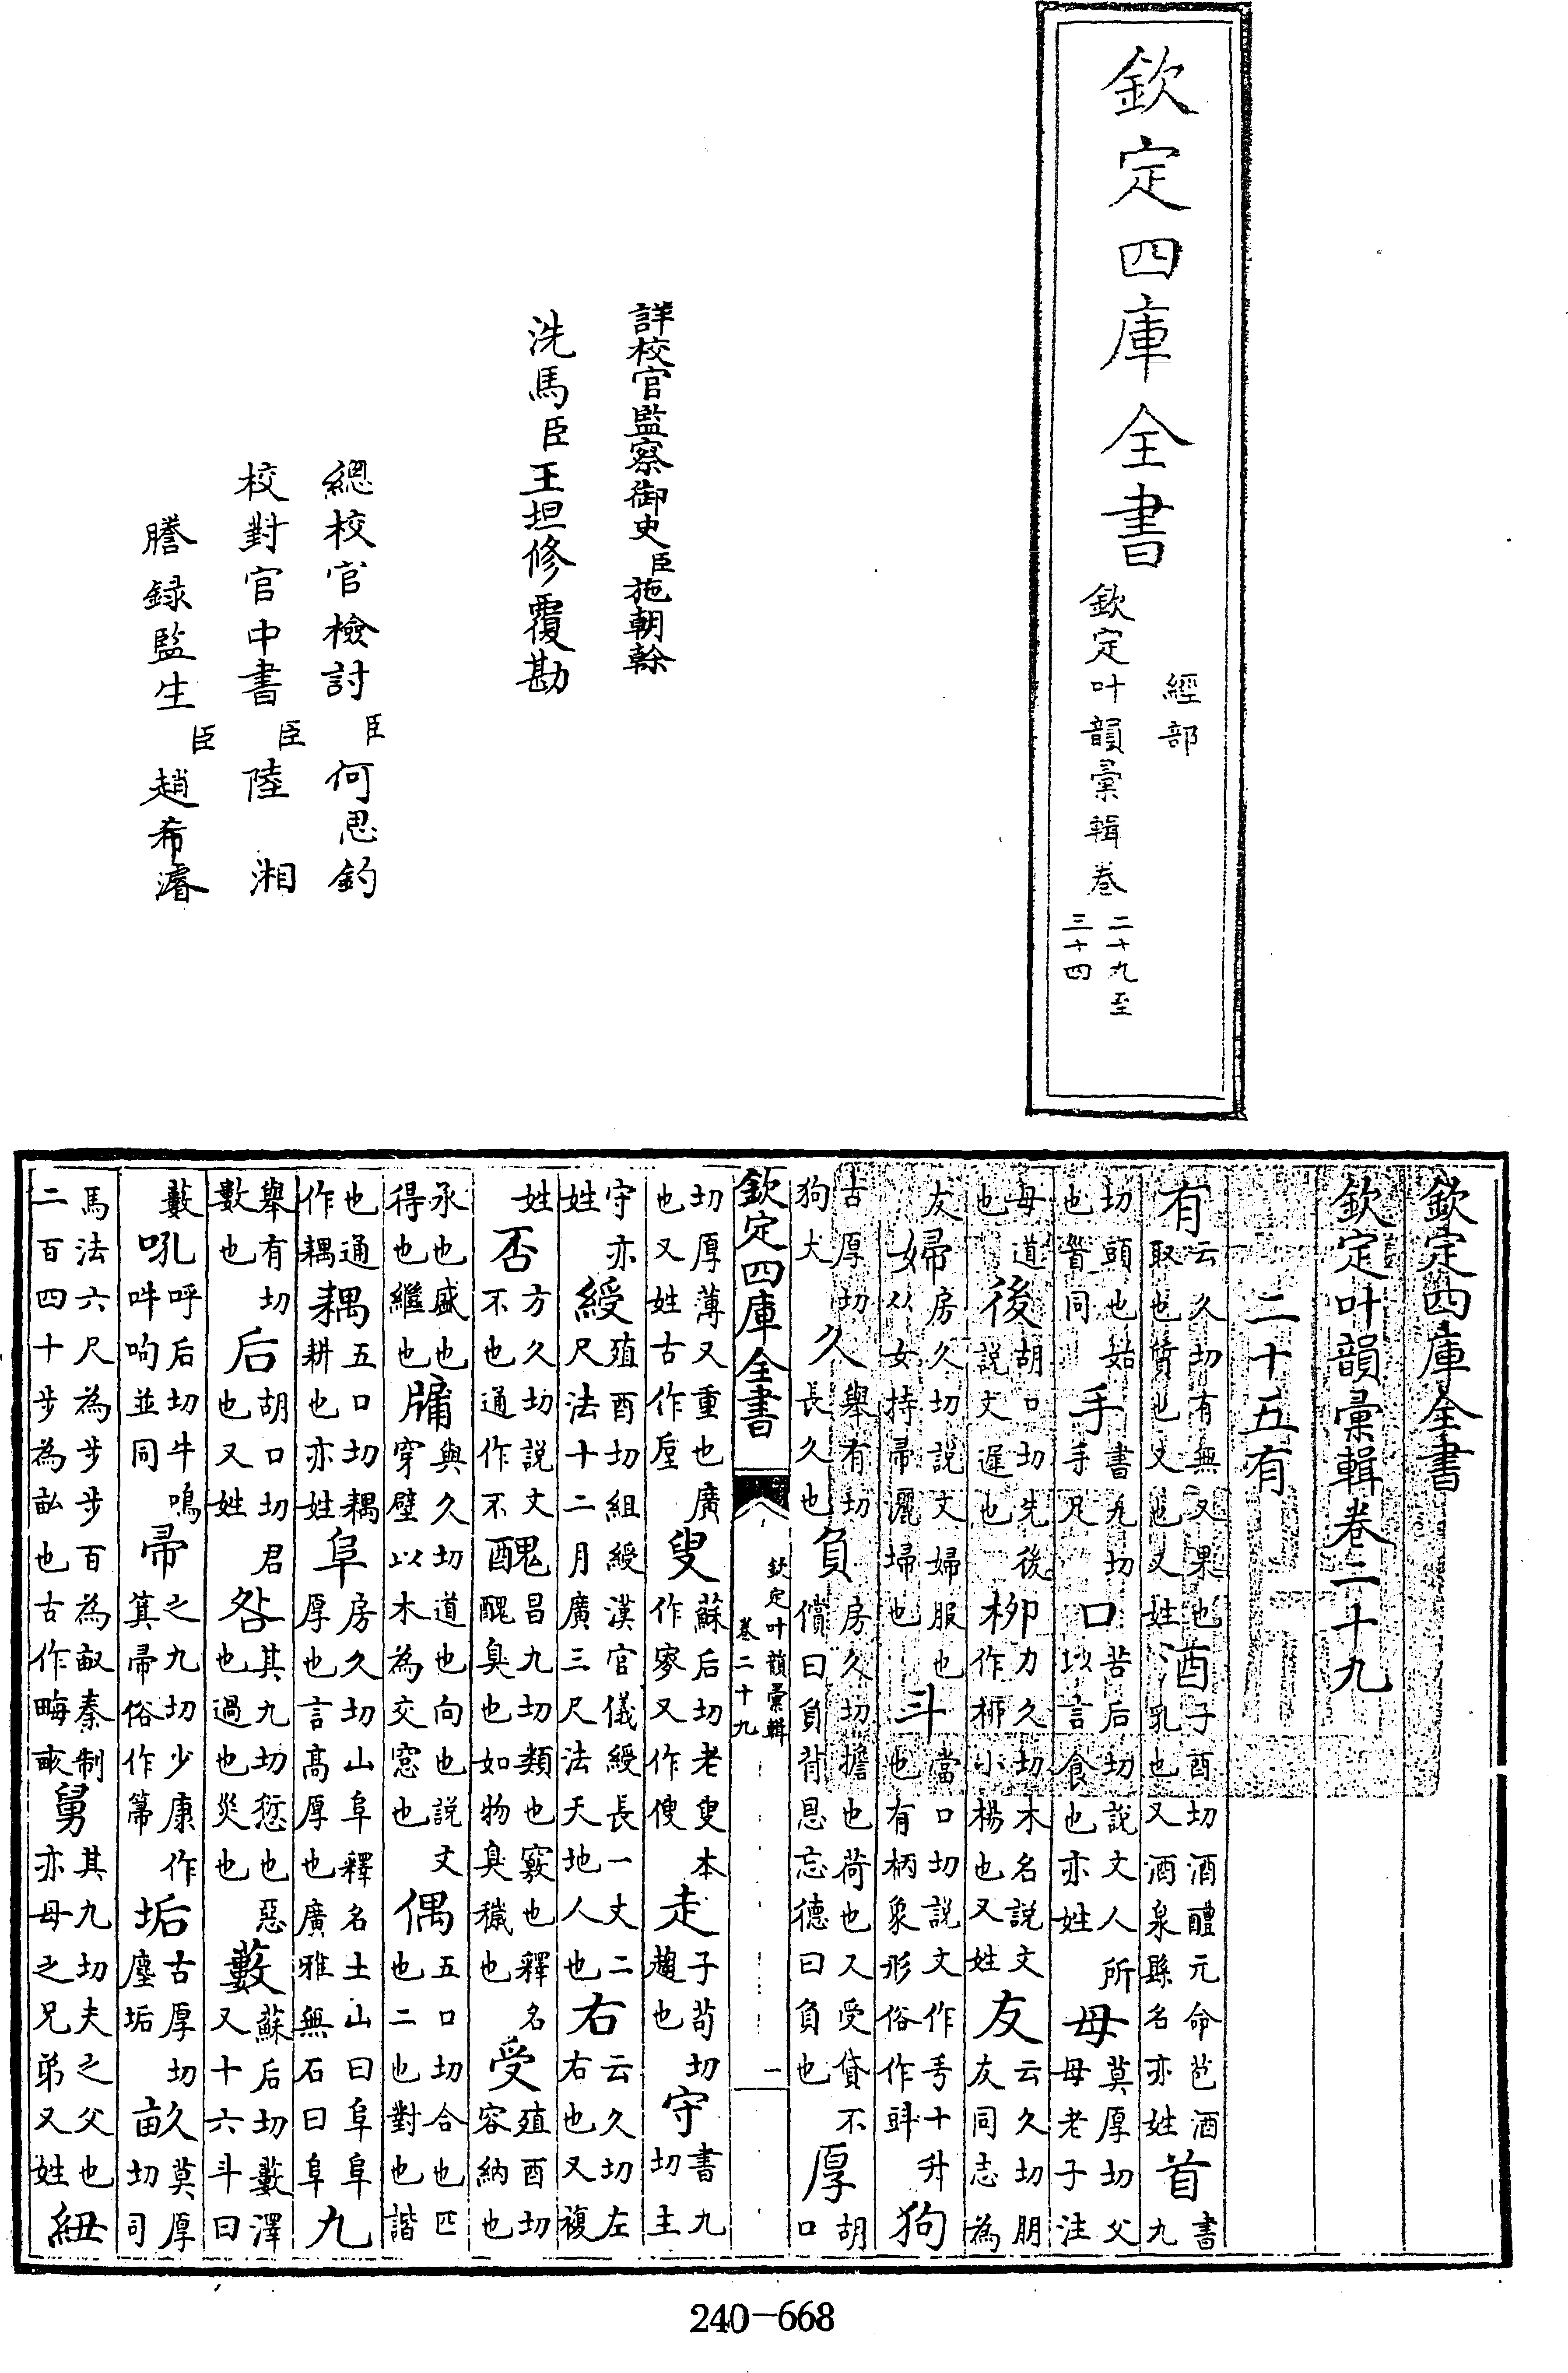 欽定四庫全書
經部
欽定叶韻彙輯卷二十九至三十四
詳校官監察御史臣施朝榦
洗馬臣王坦修覆勘
總校官檢討臣何思鈞
校對官中書臣陸湘
謄録監生臣趙希濬
欽定四庫全書
欽定叶韻彙輯卷二十九
二十五有
有云久切有無又果也取也質也又也又姓酒子酉切酒醴元命苞酒乳也又酒泉縣名亦姓首書九
切頭也始也同手書九切手足口苦后切説文人所以言食也亦姓母莫厚切父母老子注
母道也後胡口切先後説文遲也柳力久切木名説文作桺小楊也又姓友云久切朋友同志為
友婦房久切説文婦服也从女持帚灑埽也斗當口切説文作十升也有柄象形俗作㪷狗
古厚切狗犬久舉有切長久也負房久切擔也荷也又受貸不償曰負背恩忘德曰負也厚胡口
欽定四庫全書
欽定叶韻彙輯
卷二十九
一
切厚薄又重也廣也又姓古作垕叟蘇后切老叟本作㕟又作傁走子苟切趨也守書九切主
守亦姓綬殖酉切組綬漢官儀綬長一丈二尺法十二月廣三尺法天地人也右云久切左右也又複
姓否方久切説文不也通作不醜昌九切類也竅也釋名醜臭也如物臭穢也受殖酉切容納也
承也盛也得也繼也牖與久切道也向也説文穿壁以木為交窓也偶五口切合也匹也二也對也諧
也通作耦耦五口切耦耕也亦姓阜房久切山阜釋名土山曰阜阜厚也言高厚也廣雅無石曰阜九
舉有切數也后胡口切君也又姓咎其九切愆也惡也過也災也藪蘇后切藪澤又十六斗曰
藪吼呼后切牛鳴吽呴並同帚之九切少康作箕帚俗作箒垢古厚切塵垢畝莫厚切司
馬法六尺為步步百為畝秦制二百四十步為畝也古作畮畞舅其九切夫之父也亦母之兄弟又姓紐
240-668